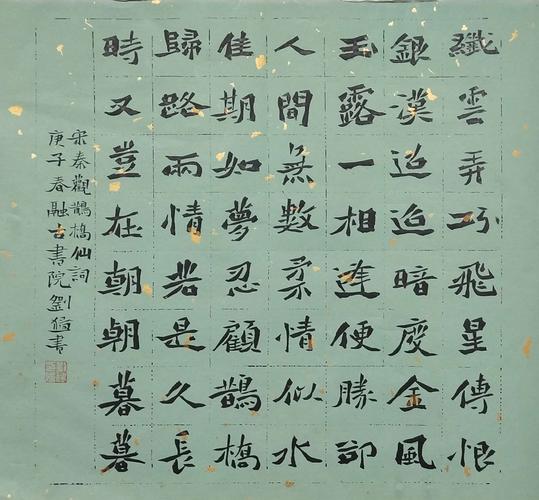 纖雲弄巧飛星傳恨
銀漢迢迢暗度金風
玉露一相逢便勝卻
人間無數柔情似水
佳期如夢忍顧鵲橋
歸路兩情若是久長
時又豈在朝朝暮暮
宋秦觀鵲橋仙詞
庚子春融古書院劉書